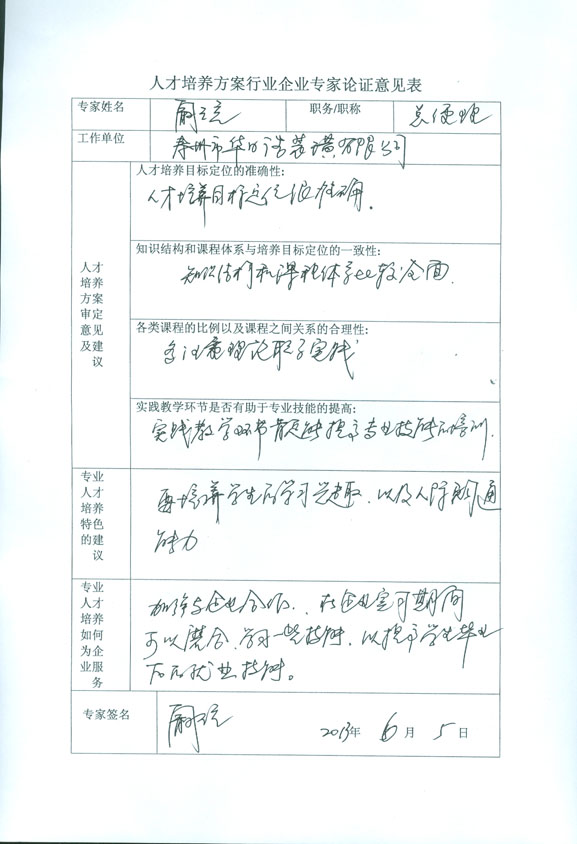 人才培养方案行业企业专家论证意见表
专家姓名 职务/职称 总经理
工作单位 市华 装潢有限公司
人才培养方案审定意见及建议
人才培养目标定位的准确性:
人才培养目标定位很准确。
知识结构和课程体系与培养目标定位的一致性:
知识结构和课程体系比较全面.
各类课程的比例以及课程之间关系的合理性:
理论 实践
实践教学环节是否有助于专业技能的提高:
实践教学环节 能提高专业技能的培训.
专业人才培养特色的建议
要培养学生的学习兴趣、以及人际沟通
能力
专业人才培养如何为企业服务
加强与企业合作、在企业 期间
可以磨合、学习一些技能、以提高学生毕业
后的就业技能。
专家签名
2013年 6 月 5 日